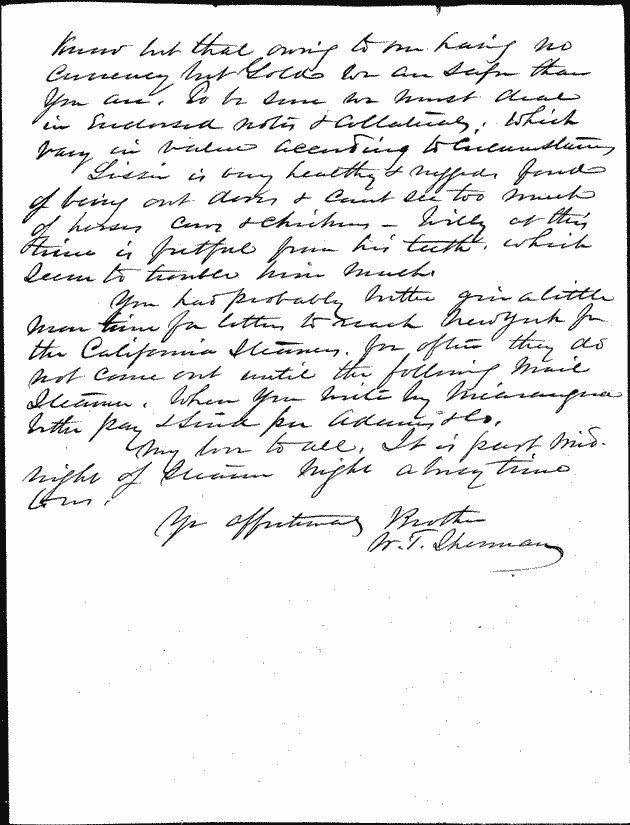 Know but that owing to our having no
Currency but Gold we are safer than
You are. To be sure we must deal
in Endorsed notes & collaterals, which
vary in value according to Circumstances
Lizzie is very healthy & rugged, fond
of being out doors & cant see too much
of horses cows & chickens - Willy at this
time is fretful from his teeth, which
Seem to trouble him much.
You had probably better give a little
more time for letters to reach New York for
the California Steamers, for often they do
not come out until the following Mail
Steamer. When you write by Nicaragua
better pay & Send per Adams & Co.
My love to all. It is past Mid-
night of Steamer Night a busy time
Yr affectionate Brother
W. T. Sherman